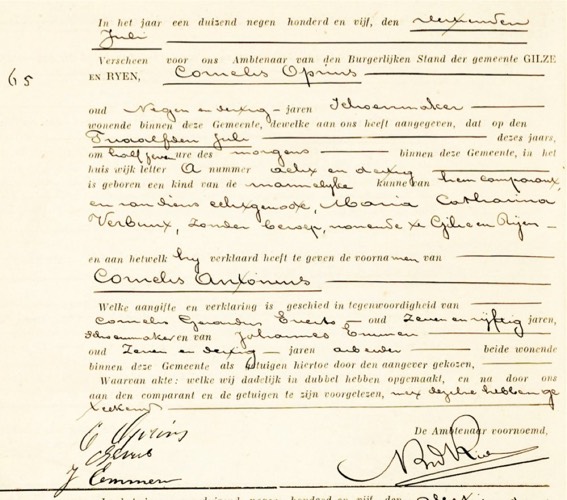 In het jaar een duizend negen honderd en vijf, den dertienden
Juli
65
Verscheen voor ons Ambtenaar van den Burgerlijken Stand der gemeente GILZE
EN RYEN, Cornelis Oprins
oud Negen en dertig jaren Schoenmaker
wonende binnen deze Gemeente, dewelke aan ons heeft aangegeven, dat op den
Twaalfden Juli dezes jaars,
om half ure des morgens binnen deze Gemeente, in het
huis wijk letter A nummer acht en dertig
is geboren een kind van de mannelijke kunne van hem comparant
en van diens echtgenoote, Maria Catharina
Verbunt, zonder beroep, wonende te Gilze en Rijen
en aan hetwelk hij verklaard heeft te geven de voornamen van
Cornelis Antonius
Welke aangifte en verklaring is geschied in tegenwoordigheid van
Cornelis Gerardus Everts oud Zeven en vijftig jaren,
Schoenmaker en van Johannes Emmen
oud Zeven en dertig jaren arbeider beide wonende
binnen deze Gemeente als getuigen hiertoe door den aangever gekozen,
Waarvan akte: welke wij dadelijk in dubbel hebben opgemaakt, en na door ons
aan den comparant en de getuigen te zijn voorgelezen, met dezelve hebben ge
teekend
De Ambtenaar voornoemd,
C Oprins
J Emmen